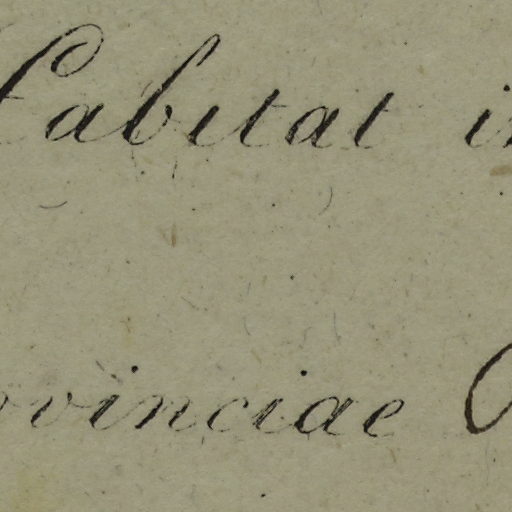 Habitat in
ovinciae